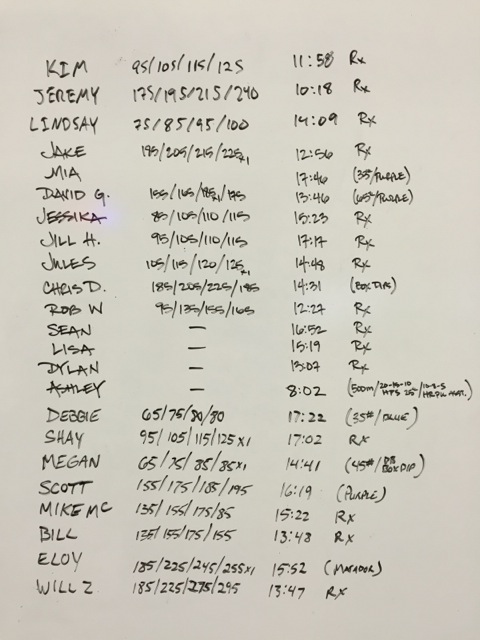 KIM 95/105/115/125 11:58 Rx
JEREMY 175/195/215/240 10:18 Rx
LINDSAY 75/85/95/100 14:09 Rx
JAKE 195/205/215/225x1 12:56 Rx
MIA 17:46 (35#/PURPLE)
DAVID G. 155/165/185x1/175 13:46 (65#/PURPLE)
JESSIKA 85/105/110/115 15:23 Rx
JILL H. 95/105/110/115 17:17 Rx
JULES 105/115/120/125x1 14:48 Rx
CHRIS D. 185/205/225/185 14:31 (BOX DIPS)
ROB W 95/135/155/165 12:27 Rx
SEAN — 16:52 Rx
LISA — 15:19 Rx
DYLAN — 13:07 Rx
ASHLEY — 8:02 (500m/20-15-10 25#/10-8-5
DEBBIE 65/75/80/80 17:22 (35#/BLUE)
SHAY 95/105/115/125x1 17:02 Rx
MEGAN 65/75/85/85x1 14:41 (45#/DB BOX DIP)
SCOTT 155/175/185/195 16:19 (PURPLE)
MIKE MC 135/155/175/85 15:22 Rx
BILL 135/155/175/155 13:48 Rx
ELOY 185/225/245/255x1 15:52 (MATADOR)
WILL Z 185/225/275/295 13:47 RX